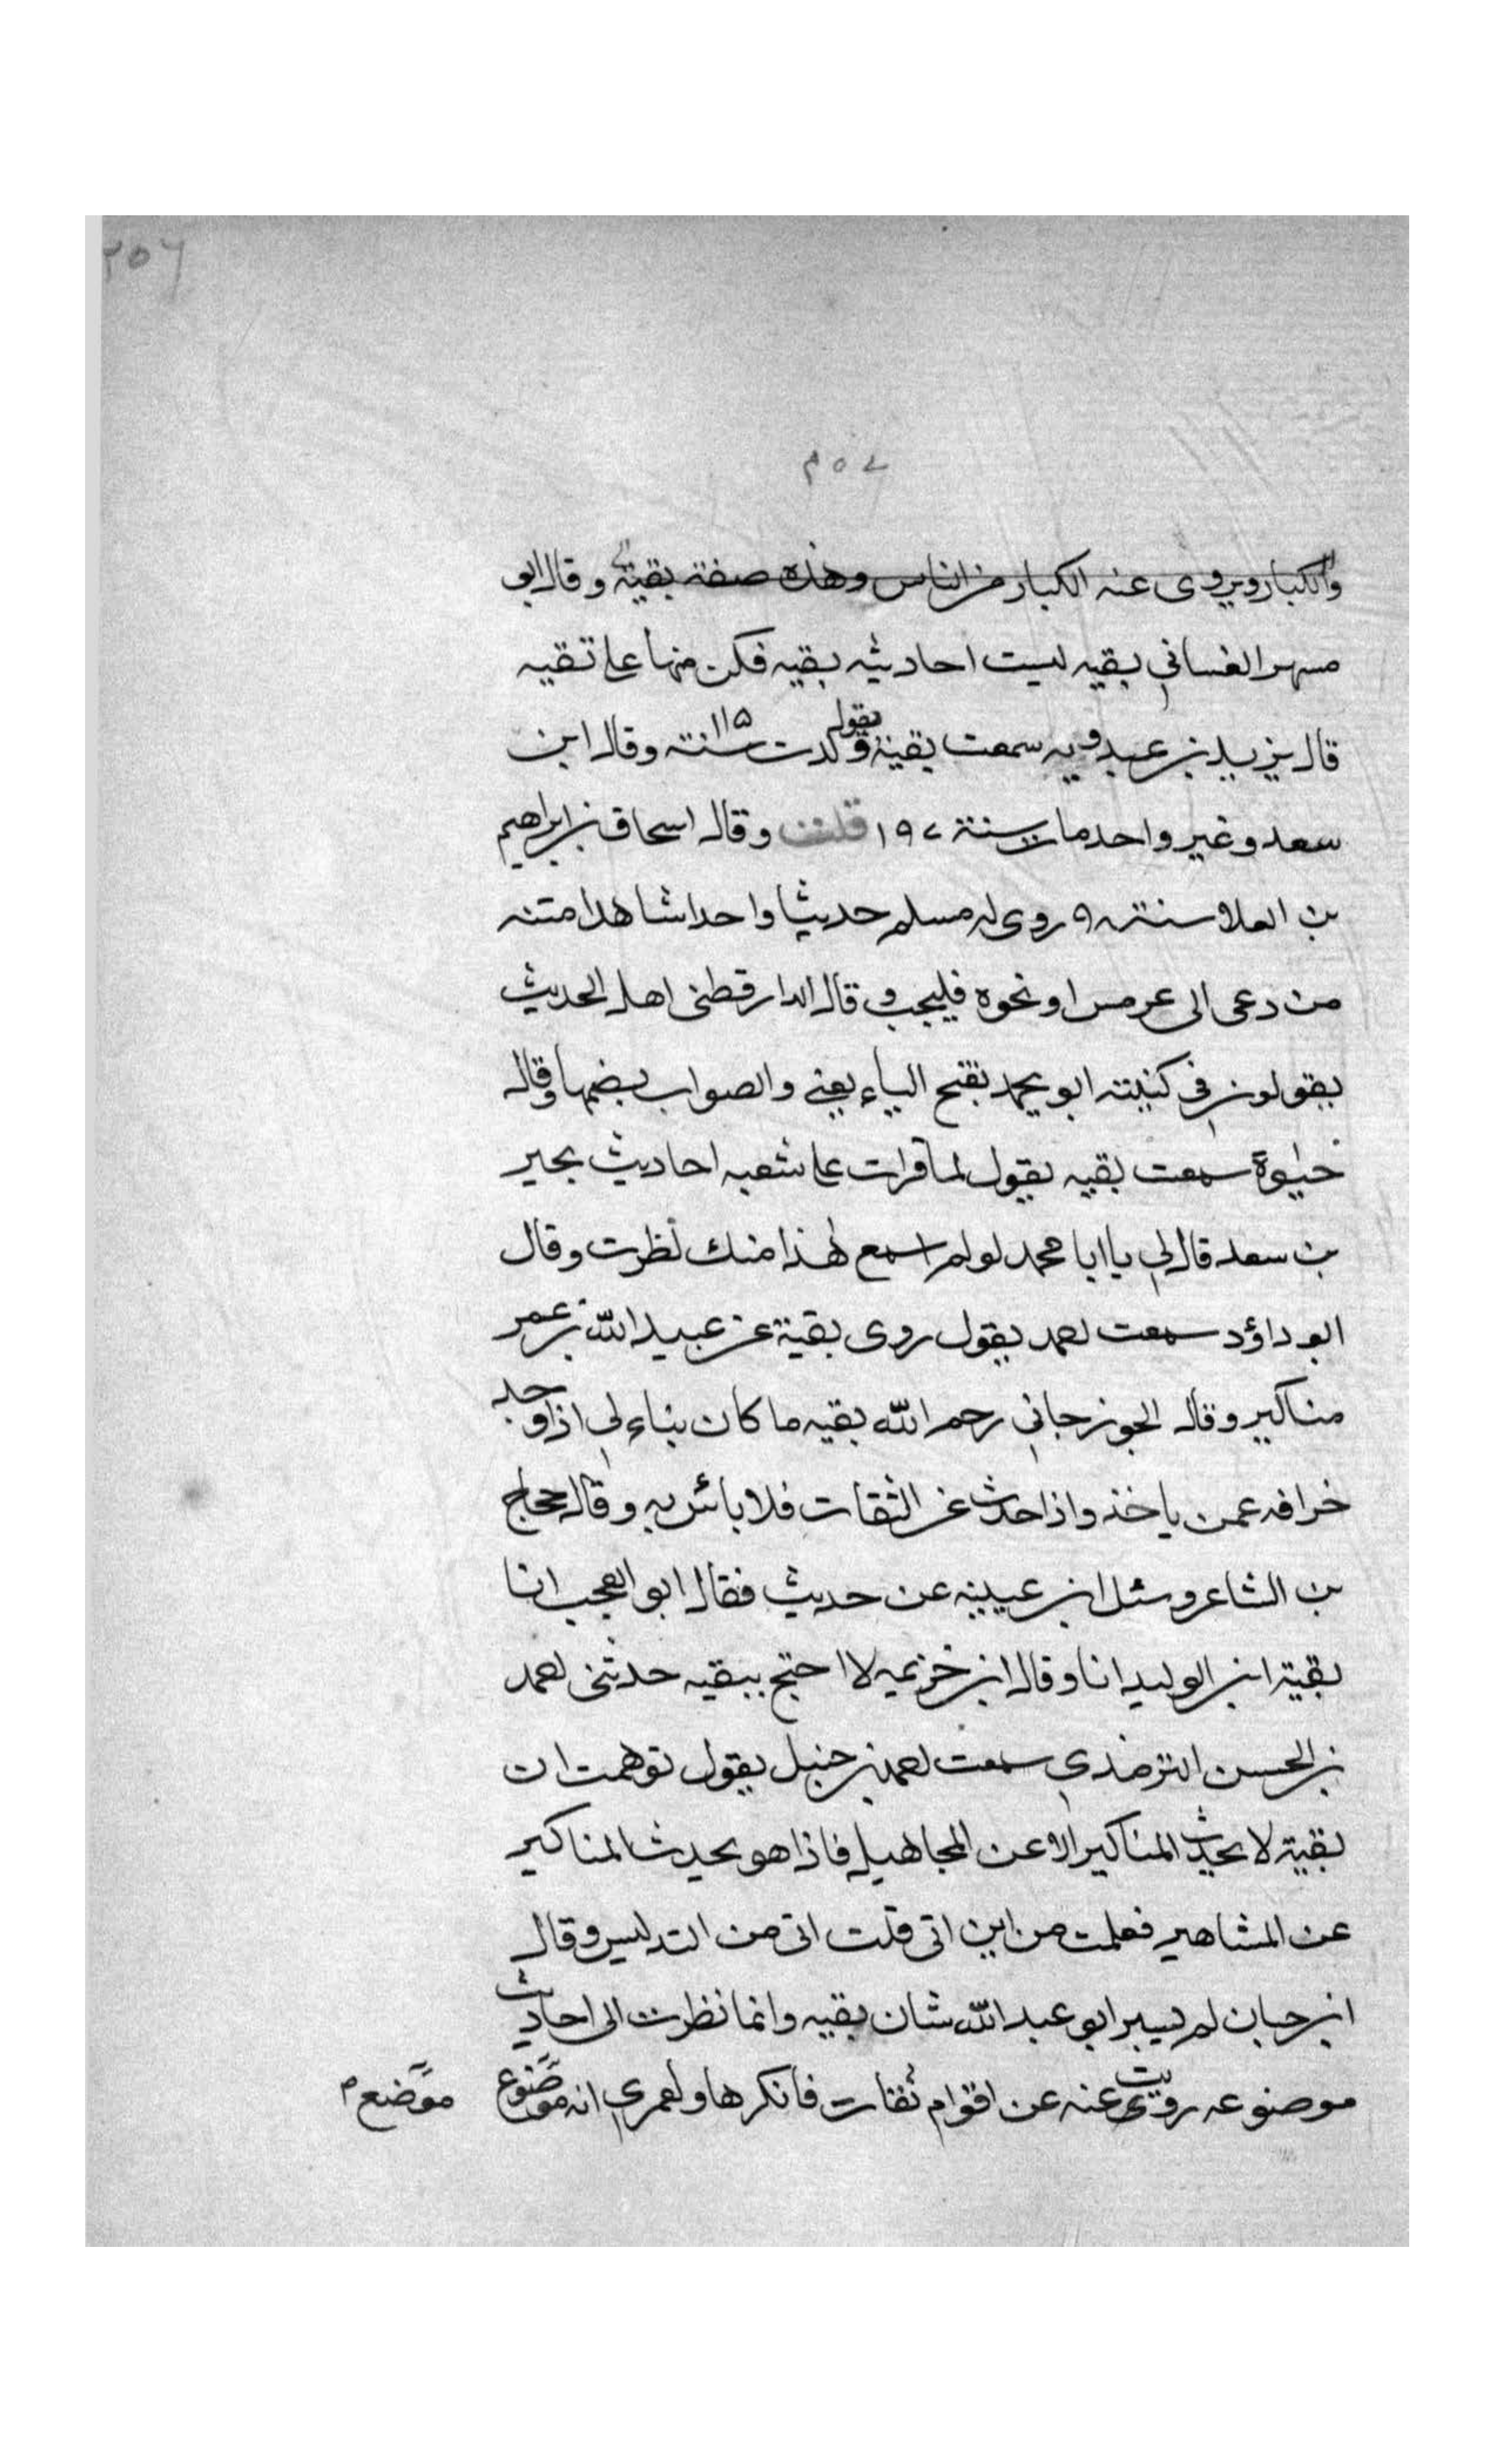 ٢٥٦
٢٥٧
والكبار ويروى عنه الكبار من الناس وهذه صفة بقية وقال ابو
مسهر الغساني بقيه ليست احاديثه بقيه فكن منها على تقيه
قال يزيد بن عبد ربه سمعت بقية يقول ولدت سنة ١١٥ وقال ابن
سعد وغير واحد مات سنة ١٩٧ قلت وقال اسحاق بن ابراهيم
بن العلا سنة روى له مسلم حديثا واحدا شاهدا متنه
من دعى الى عرس او نحوه فليجب وقال الدارقطنى اهل الحديث
يقولون في كنيته ابو يحمد بفتح الياء يعني والصواب بضمها وقال
حيوة سمعت بقيه يقول لما قرات على شعبه احاديث بحير
بن سعد قال لي يا ابا محمد لو لم اسمع هذا منك لطرت وقال
ابو داؤد سمعت احمد يقول روى بقية عن عبيد الله بن عمر
مناكير وقال الجوزجاني رحم الله بقيه ما كان يباءلي اذا وجد
خرافه عمن ياخذ واذا حدث عن الثقات فلا بائس به وقال حجاج
بن الشاعر وسئل ابن عيينه عن حديث فقال ابو العجب انا
بقية ابن الوليد انا وقال ابن خزيمه لا احتج ببقيه حدثنى احمد
بن الحسن الترمذي سمعت احمد بن حنبل يقول توهمت ان
بقية لا يحدث المناكير الا عن المجاهيل فاذا هو يحدث المناكير
عن المشاهير فعلمت من اين اتى قلت اتى من التدليس وقال
ابن حبان لم يسبر ابو عبد الله شان بقيه وانما نظرت الى احاديث
موضوعه رويت عنه عن اقوام ثقات فانكرها ولعمري انه موضوع موضع م